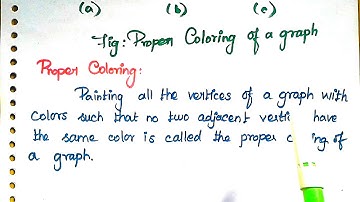 (a) (b) (c)
Fig: Proper Coloring of a graph
Proper Coloring:
Painting all the vertices of a graph with
colors such that no two adjacent verti have
the same color is called the proper c ing of
a graph.